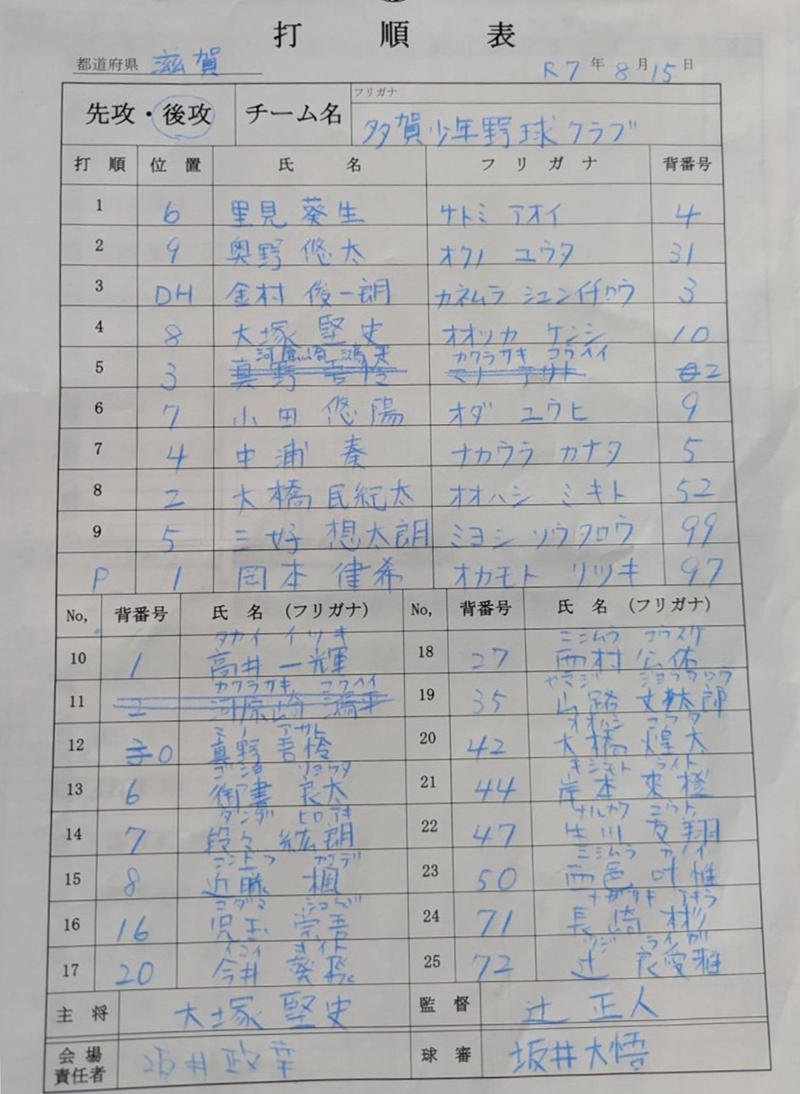 打順表
都道府県 滋賀 R7年8月15日
先攻・後攻 チーム名 フリガナ 多賀少年野球クラブ
打順 位置 氏名 フリガナ 背番号
1 6 里見 葵生 サトミ アオイ 4
2 9 奥野 悠太 オクノ ユウタ 31
3 DH 金村 俊一朗 カネムラ シュンイチロウ 3
4 8 大塚 堅史 オオツカ ケンシ 10
河原崎 鴻平 カワラサキ コウヘイ
5 3 真野 吾怜 マノ アサト 2
6 7 小田 悠陽 オダ ユウヒ 9
7 4 中浦 奏 ナカウラ カナタ 5
8 2 大橋 民紀太 オオハシ ミキト 52
9 5 三好 想太朗 ミヨシ ソウタロウ 99
P 1 岡本 律希 オカモト リツキ 97
No, 背番号 氏名(フリガナ) No, 背番号 氏名(フリガナ)
タカイ イツキ ニシムラ コウスケ
10 1 高井 一輝 18 27 西村
カワラサキ コウヘイ ヤマジ ジョウタロウ
11 2 河原崎 鴻平 19 35 山路 丈太郎
マノ アサト オオハシ コウタ
12 0 真野 吾怜 20 42 大橋 煌太
リョウタ キシモト ライト
13 6 良太 21 44 岸本 來橙
ダンダ ヒロアキ ナルカワ ユウト
14 7 段々 紘明 22 47 生川 友翔
コンドウ カエデ ニシムラ カノイ
15 8 近藤 楓 23 50 西邑 叶惟
コダマ ショウゴ ナガサキ
16 16 児玉 崇吾 24 71 長崎
イマイ アオト ツジ ライガ
17 20 今井 葵飛 25 72 辻 良愛雅
主将 大塚 堅史 監督 辻 正人
会場責任者 坂井政幸 球審 坂井大悟